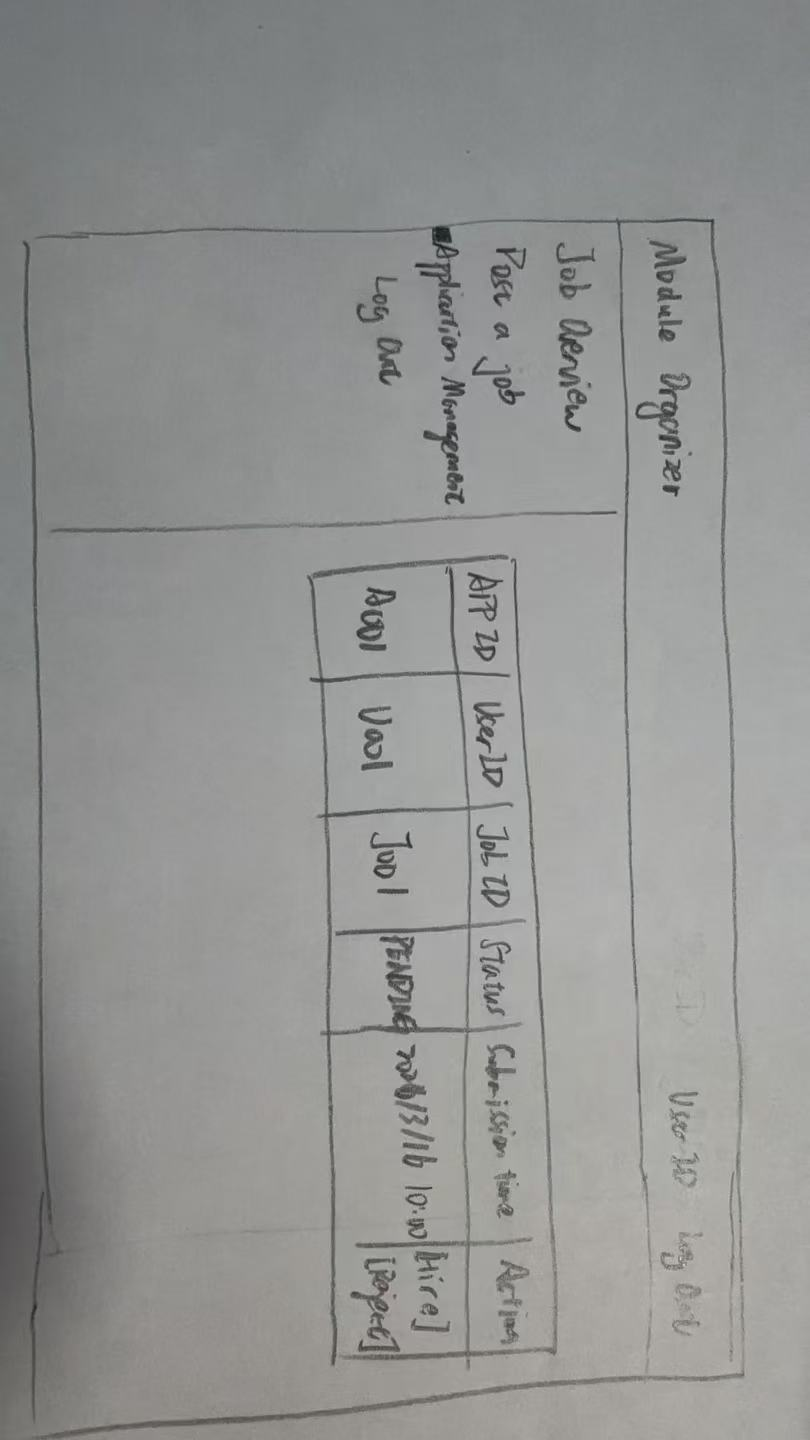 Module Organizer User ID Log Out
Job Overview
Post a job
Application Management
Log Out
APP ID User ID Job ID Status Submission time Action
A001 U001 J001 PENDING 2026/3/16 10:00 [Hire]
[Reject]